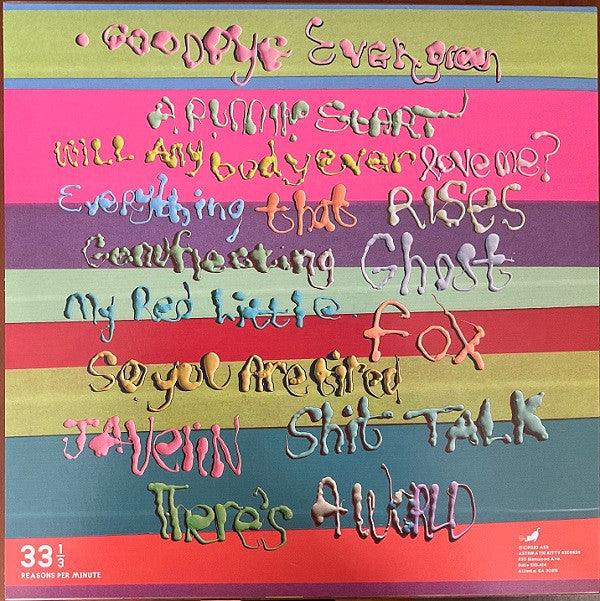 GOODBYE EVERgreen
A RUNNIN START
WiLL Any bodyever love me?
Everything that RISES
Genuflecting Ghost
My Red Little Fox
So you Are tired
JAVELIN Shit TALK
There's A WORLD
33 1/3
REASONS PER MINUTE
ASTHMATIC KITTY RECORDS